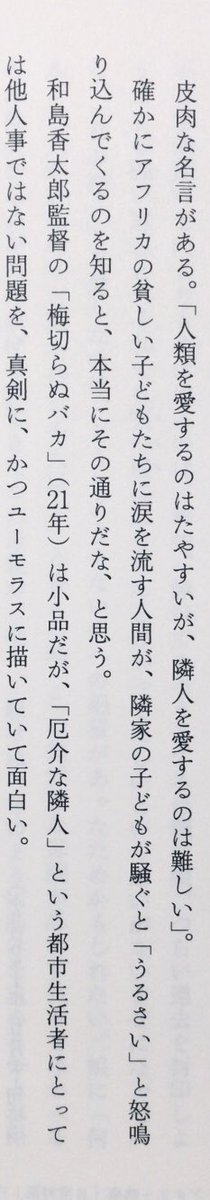 皮肉な名言がある。「人類を愛するのはたやすいが、隣人を愛するのは難しい」。
確かにアフリカの貧しい子どもたちに涙を流す人間が、隣家の子どもが騒ぐと「うるさい」と怒鳴
り込んでくるのを知ると、本当にその通りだな、と思う。
和島香太郎監督の「梅切らぬバカ」（21年）は小品だが、「厄介な隣人」という都市生活者にとって
は他人事ではない問題を、真剣に、かつユーモラスに描いていて面白い。